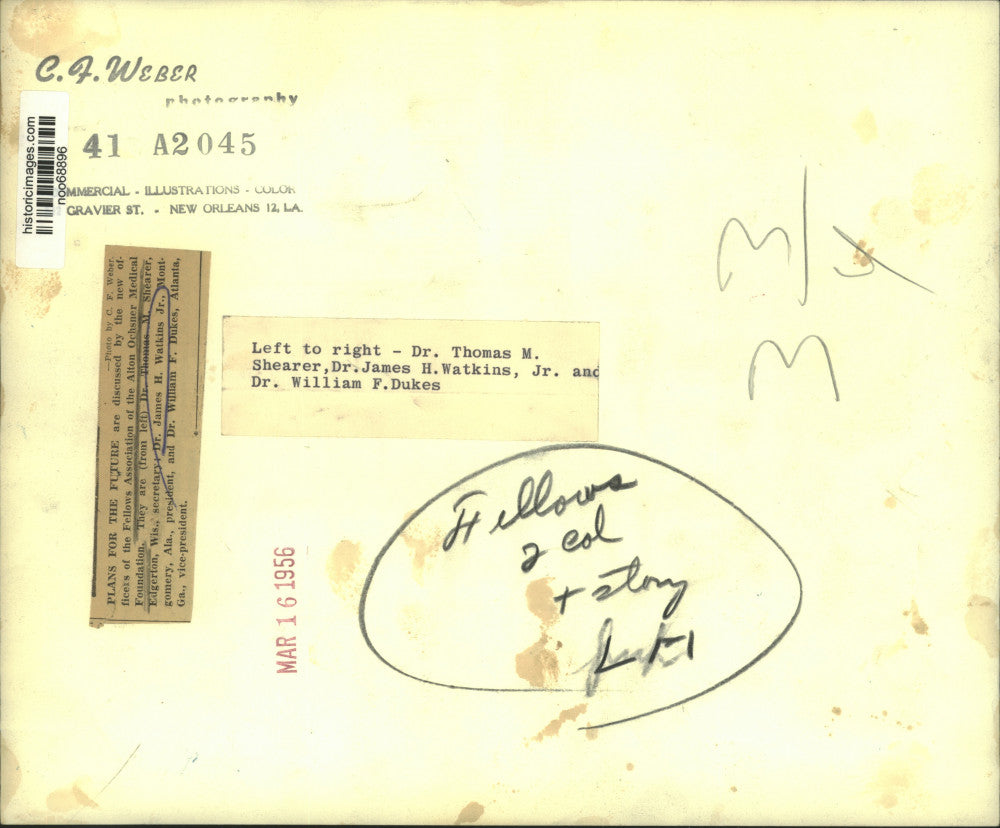 C.F. WEBER
photography
41 A2045
MMERCIAL - ILLUSTRATIONS - COLOR
GRAVIER ST. - NEW ORLEANS 12, LA.
historicimages.com
noo68896
—Photo by C. F. Weber.
PLANS FOR THE FUTURE are discussed by the new of-
ficers of the Fellows Association of the Alton Ochsner Medical
Foundation. They are (from left) Dr. Thomas M. Shearer,
Edgerton, Wis., secretary; Dr. James H. Watkins Jr., Mont-
gomery, Ala., president, and Dr. William F. Dukes, Atlanta,
Ga., vice-president.
Left to right - Dr. Thomas M.
Shearer,Dr.James H.Watkins, Jr. and
Dr. William F.Dukes
MAR 16 1956
3/4
3
Fellows
2 col
+ story